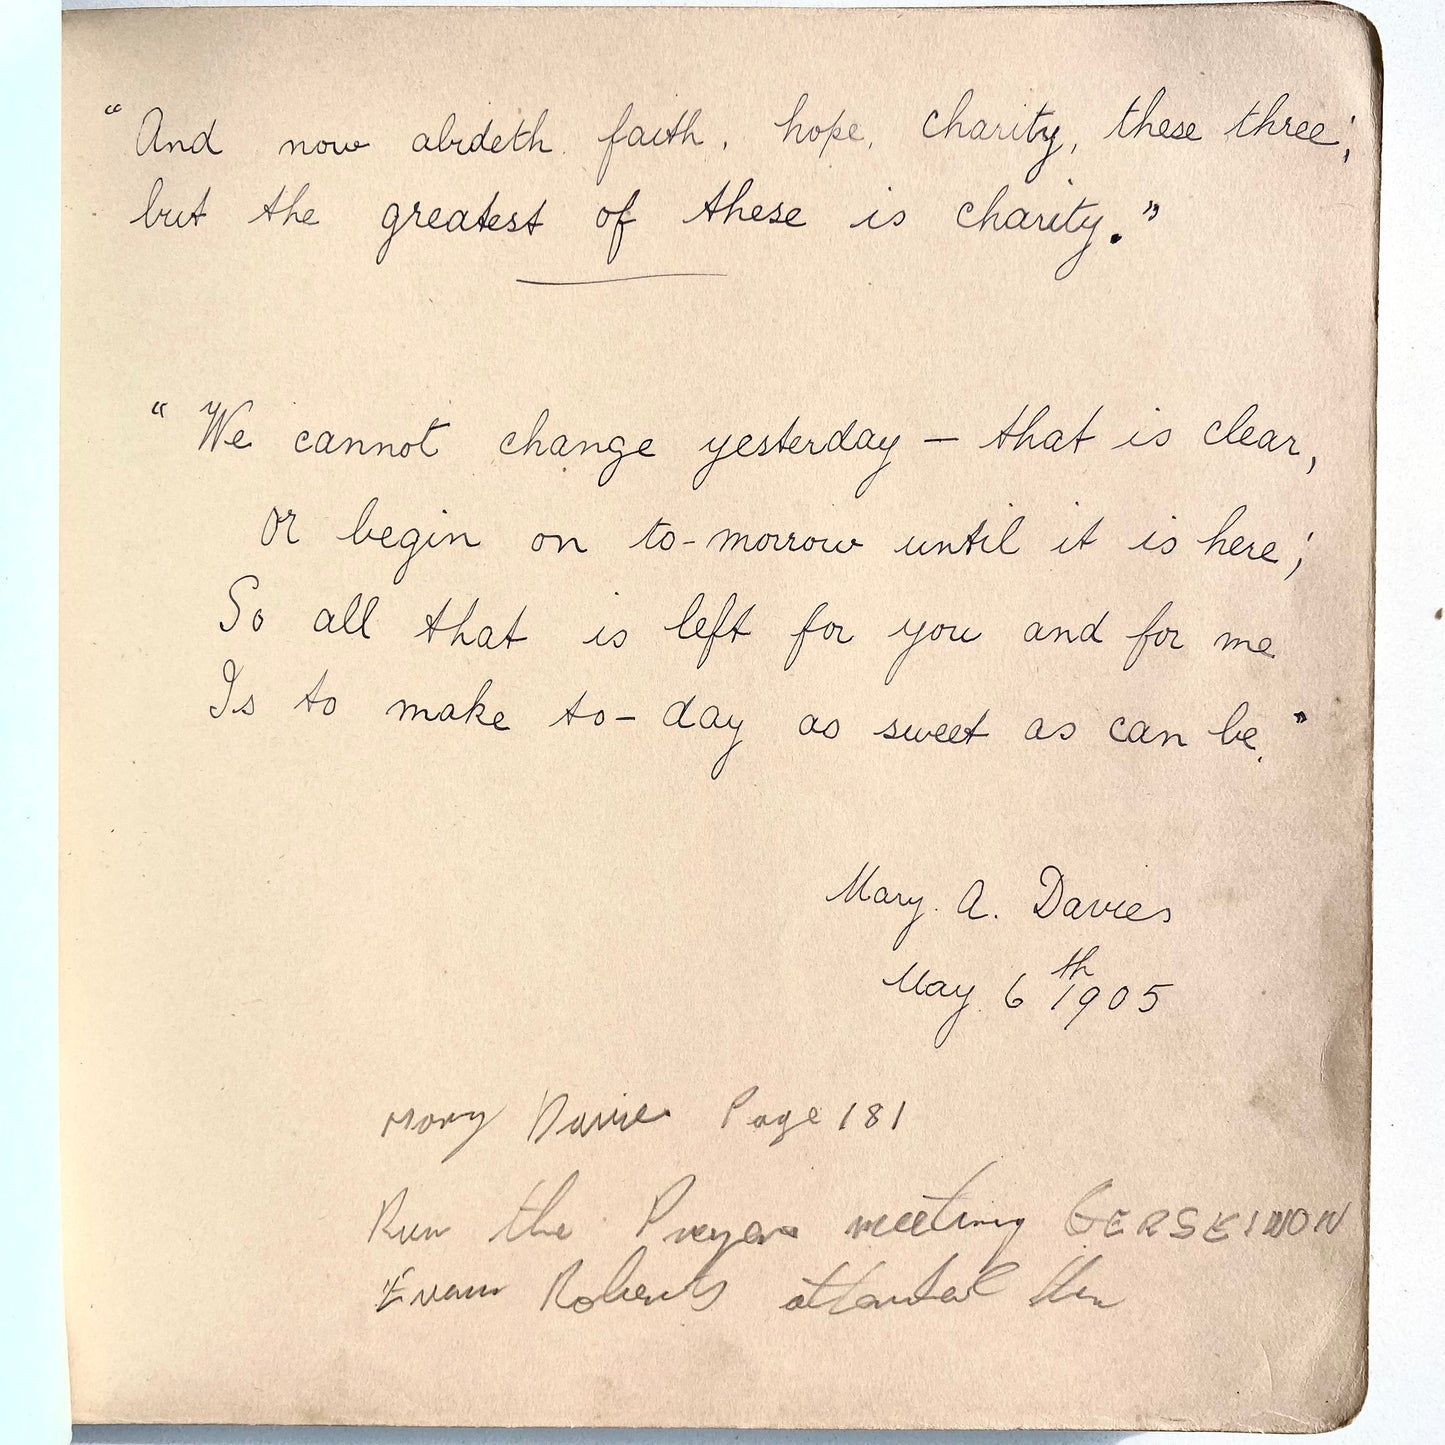 "And now abideth faith, hope, charity, these three;
but the greatest of these is charity."
"We cannot change yesterday – that is clear,
or begin on to-morrow until it is here;
So all that is left for you and for me
Is to make to-day as sweet as can be."
Mary. A. Davies
May 6th 1905
Mary Davies Page 181
Run the Prayer meeting
Evan Roberts attended